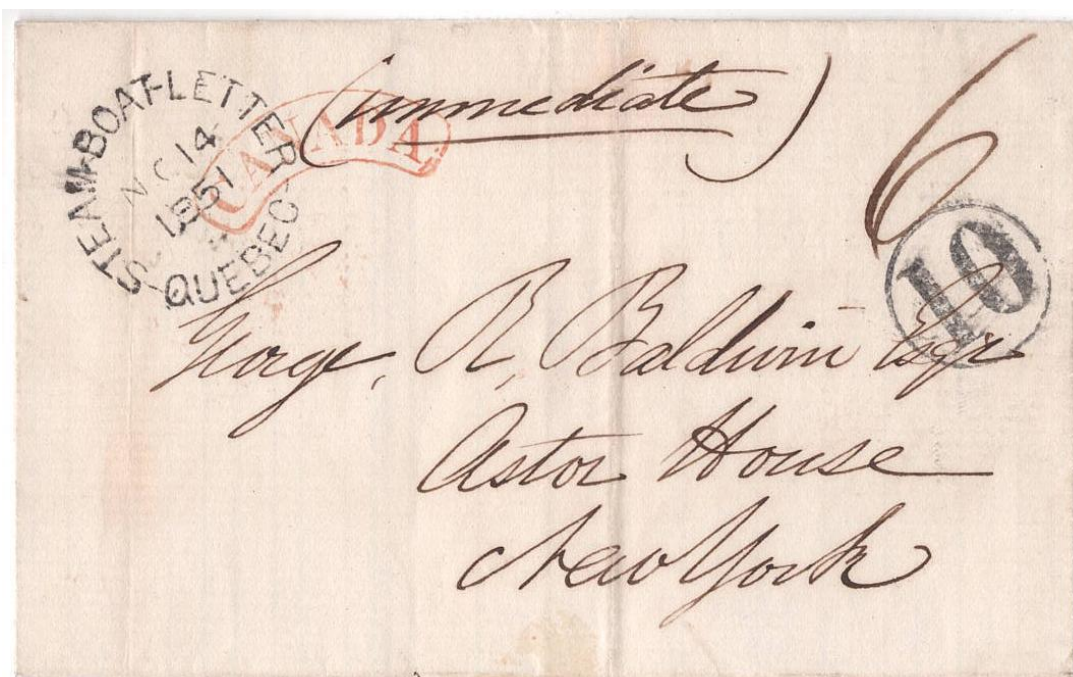 STEAM-BOAT-LETTER
14
1851
QUEBEC
CANADA
(immediate)
6
10
George, R, Baldwin Esqr
Astor House
New York